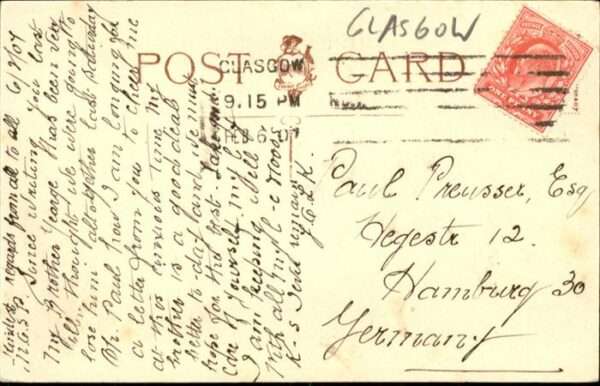 GLASGOW
POST CARD
GLASGOW
9.15 PM
FEB 6 07
Kindest regards from all to all 6/2/07
Since writing you last
My Brother George has been very
ill. thought we were going to
lose him altogether last Saturday
Oh, Paul how I am longing for
a letter from you to cheer me
at this anxious time. My
brother is a good deal
better to day and we must
hope for the best. Take good
care of yourself my
I am keeping well
With all my
Paul Preusser, Esq
Hegestr 12.
Hamburg 30
Germany